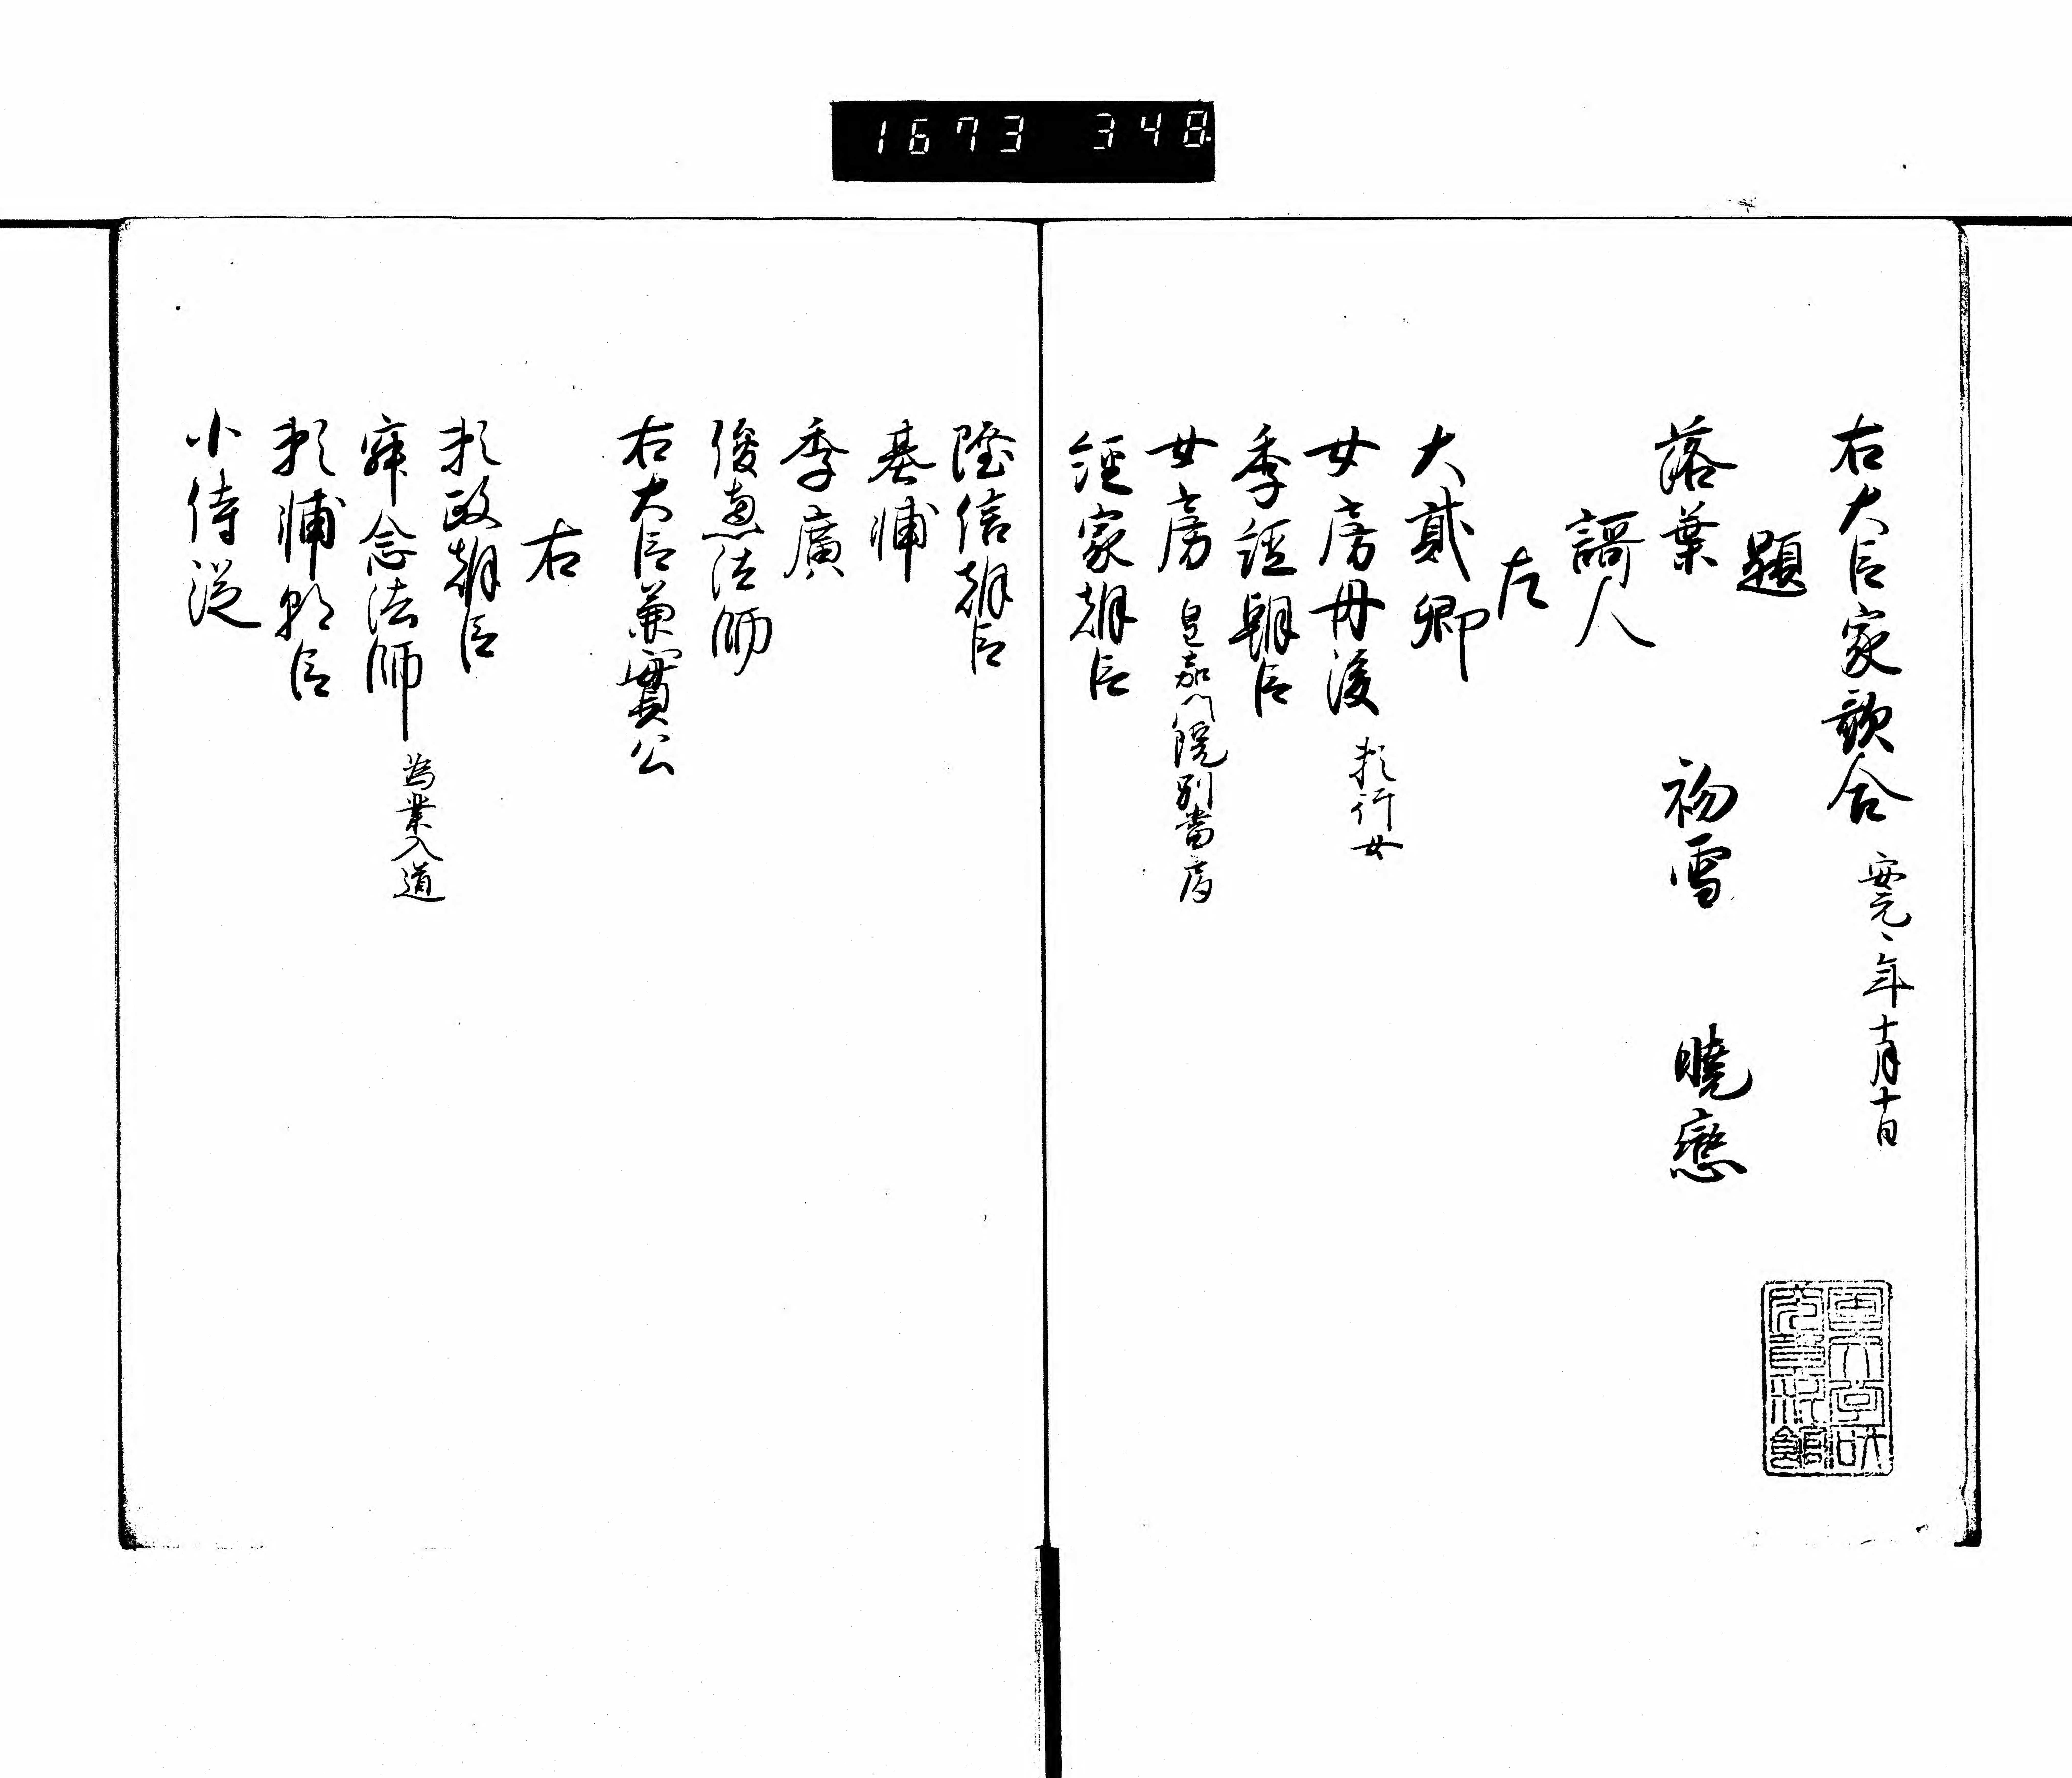 1673 348
右大臣家歌合 安元〻年十月十日
題
落葉 初雪 曉戀
謌人
左
大貳卿
女房丹後 頼行女
季經朝臣
女房 皇嘉門院別當房
經家朝臣
隆信朝臣
基輔
季廣
俊恵法師
右大臣兼實公
右
頼政朝臣
寂念法師 為業入道
頼輔朝臣
小侍従